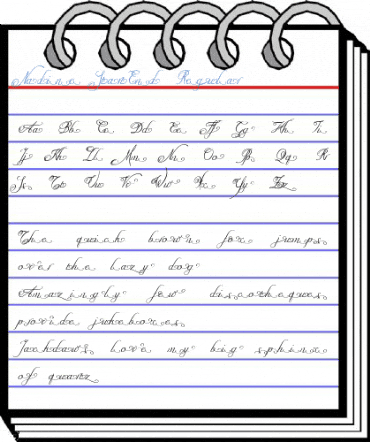 Nadine StartEnds Regular
Aa Bb Cc Dd Ee Ff Gg Hh Ii
Jj Kk Ll Mm Nn Oo Pp Qq Rr
Ss Tt Uu Vv Ww Xx Yy Zz
The quick brown fox jumps
over the lazy dog
Amazingly few discotheques
provide jukeboxes
Jackdaws love my big sphinx
of quartz